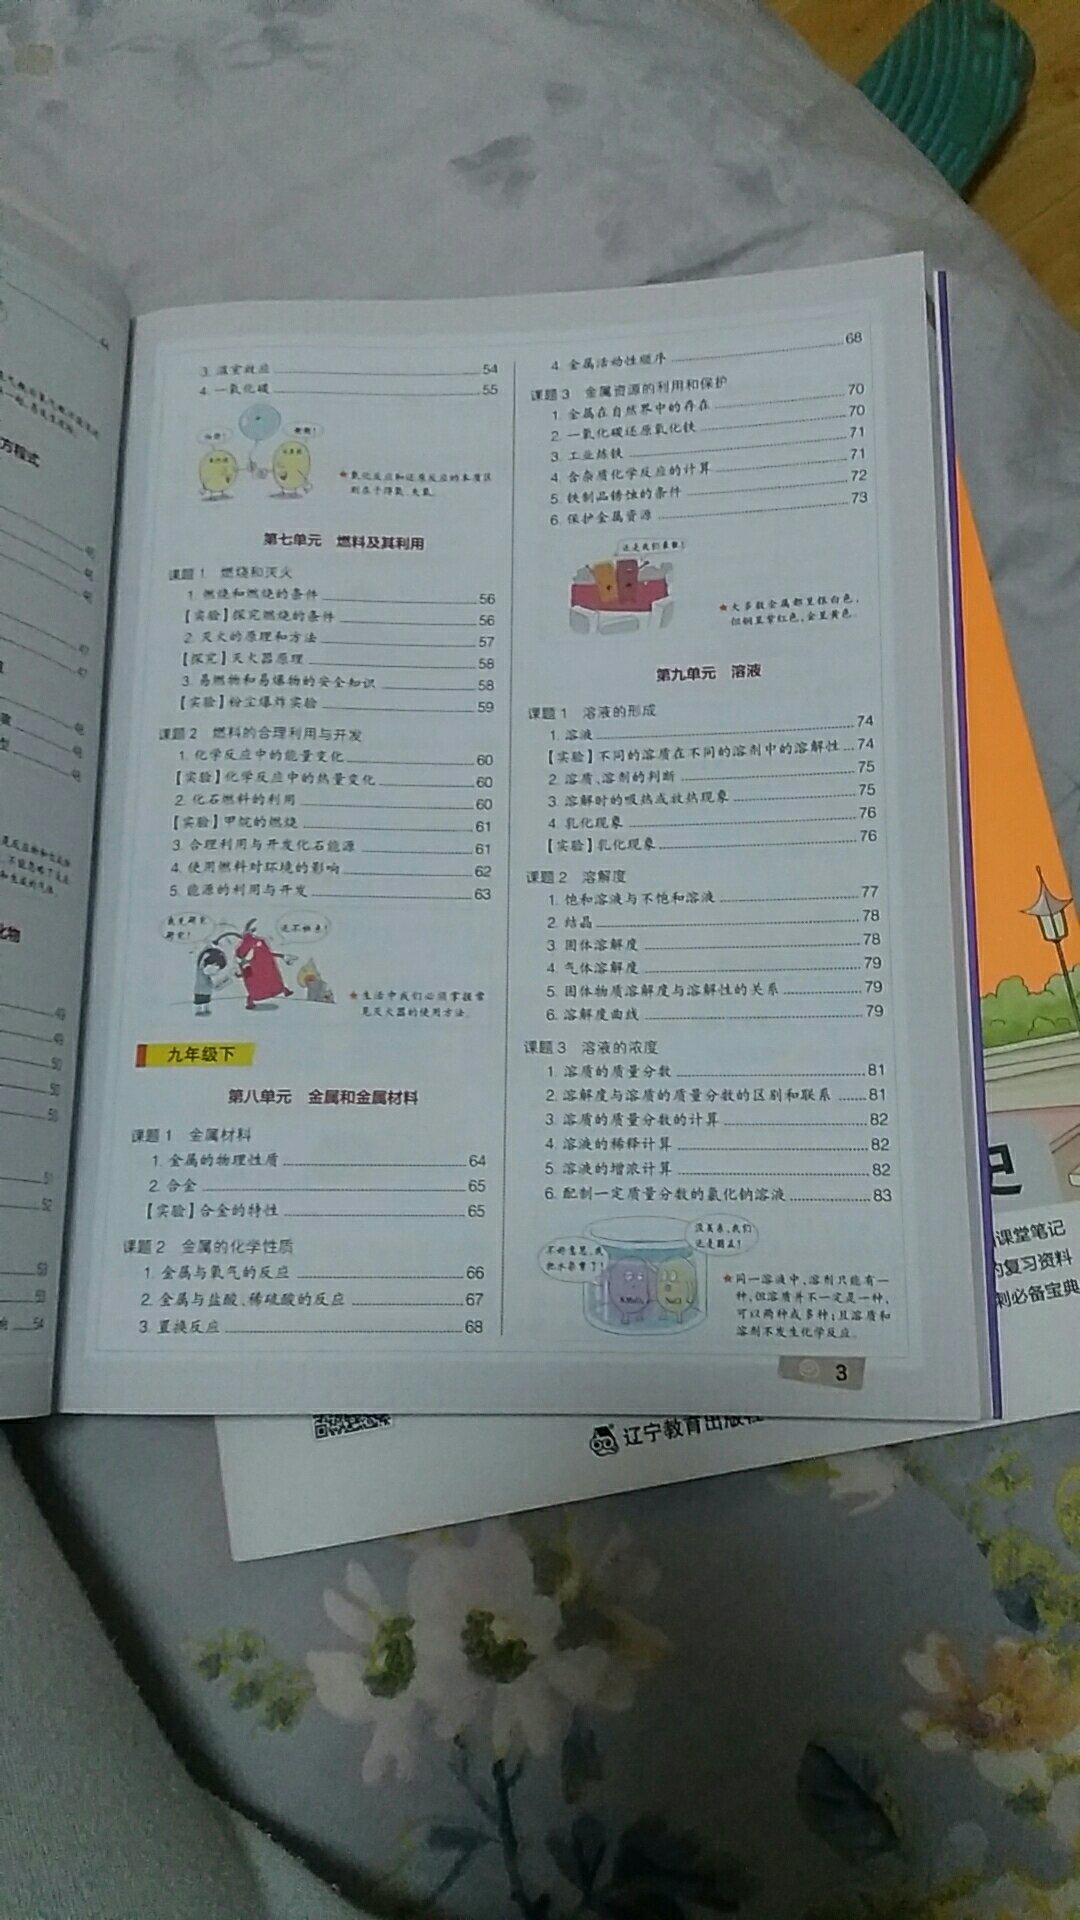 方程式
化物
3. 温室效应 54
4. 一氧化碳 55
★氧化反应和还原反应的本质区
别在于得氧、失氧。
第七单元 燃料及其利用
课题1 燃烧和灭火
1. 燃烧和燃烧的条件 56
【实验】探究燃烧的条件 56
2. 灭火的原理和方法 57
【探究】灭火器原理 58
3. 易燃物和易爆物的安全知识 58
【实验】粉尘爆炸实验 59
课题2 燃料的合理利用与开发
1. 化学反应中的能量变化 60
【实验】化学反应中的热量变化 60
2. 化石燃料的利用 60
【实验】甲烷的燃烧 61
3. 合理利用与开发化石能源 61
4. 使用燃料对环境的影响 62
5. 能源的利用与开发 63
★生活中我们必须掌握常
见灭火器的使用方法。
九年级下
第八单元 金属和金属材料
课题1 金属材料
1. 金属的物理性质 64
2. 合金 65
【实验】合金的特性 65
课题2 金属的化学性质
1. 金属与氧气的反应 66
2. 金属与盐酸、稀硫酸的反应 67
3. 置换反应 68
4. 金属活动性顺序 68
课题3 金属资源的利用和保护
1. 金属在自然界中的存在 70
2. 一氧化碳还原氧化铁 70
3. 工业炼铁 71
4. 含杂质化学反应的计算 71
5. 铁制品锈蚀的条件 72
6. 保护金属资源 73
★大多数金属都呈银白色，
但铜呈紫红色，金呈黄色。
第九单元 溶液
课题1 溶液的形成
1. 溶液 74
【实验】不同的溶质在不同的溶剂中的溶解性 74
2. 溶质、溶剂的判断 75
3. 溶解时的吸热或放热现象 75
4. 乳化现象 76
【实验】乳化现象 76
课题2 溶解度
1. 饱和溶液与不饱和溶液 77
2. 结晶 78
3. 固体溶解度 78
4. 气体溶解度 79
5. 固体物质溶解度与溶解性的关系 79
6. 溶解度曲线 79
课题3 溶液的浓度
1. 溶质的质量分数 81
2. 溶解度与溶质的质量分数的区别和联系 81
3. 溶质的质量分数的计算 82
4. 溶液的稀释计算 82
5. 溶液的增浓计算 82
6. 配制一定质量分数的氯化钠溶液 83
不好意思，我
把水染重了！
没关系，我们
还是朋友！
KMnO₄
NaCl
★同一溶液中，溶剂只能有一
种，但溶质并不一定是一种，
可以两种或多种；且溶质和
溶剂不发生化学反应。
3
课堂笔记
的复习资料
刺必备宝典
辽宁教育出版社